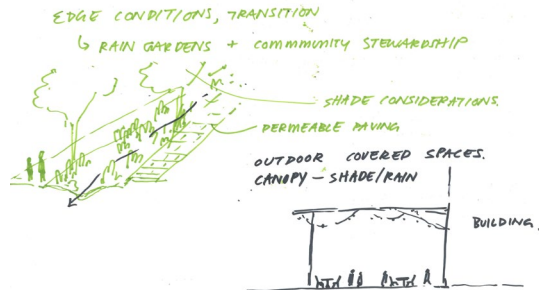 EDGE CONDITIONS, TRANSITION
↳ RAIN GARDENS + COMMMUNITY STEWARDSHIP
SHADE CONSIDERATIONS.
PERMEABLE PAVING
OUTDOOR COVERED SPACES.
CANOPY – SHADE/RAIN
BUILDING.